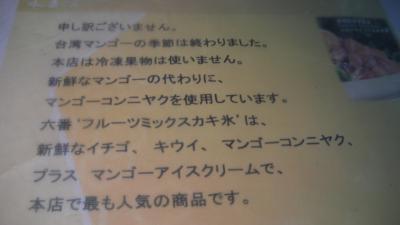 申し訳ございません。
台湾マンゴーの季節は終わりました。
本店は冷凍果物は使いません。
新鮮なマンゴーの代わりに、
マンゴーコンニヤクを使用しています。
六番‘フルーツミックスカキ氷’は、
新鮮なイチゴ、 キウイ、 マンゴーコンニヤク、
プラス マンゴーアイスクリームで、
本店で最も人気の商品です。